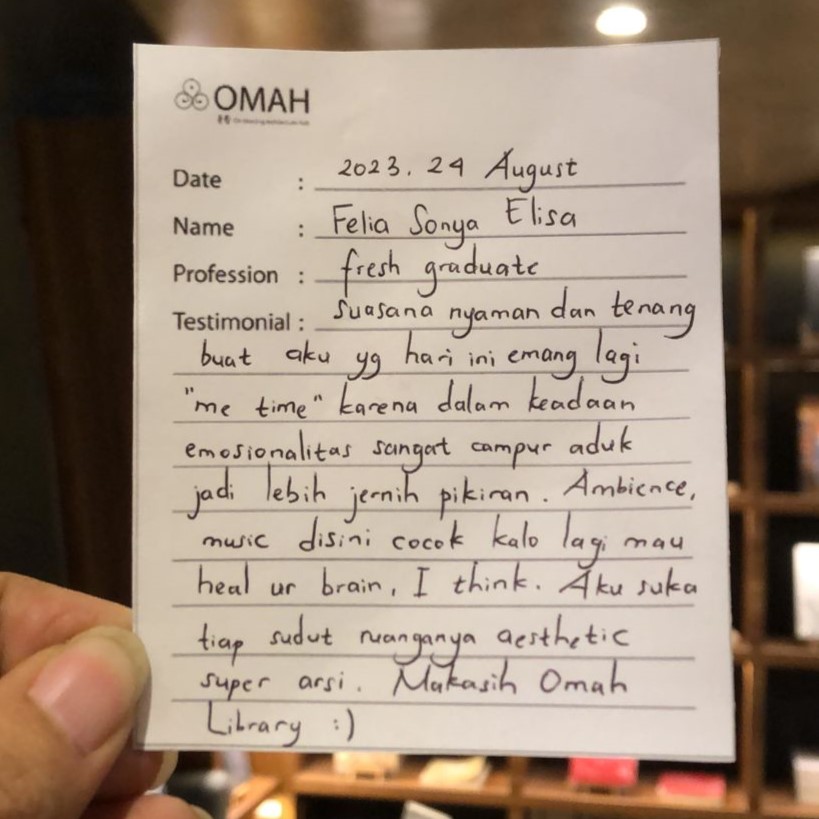 OMAH
Date : 2023. 24 August
Name : Felia Sonya Elisa
Profession : fresh graduate
Testimonial : suasana nyaman dan tenang
buat aku yg hari ini emang lagi
"me time" karena dalam keadaan
emosionalitas sangat campur aduk
jadi lebih jernih pikiran. Ambience,
music disini cocok kalo lagi mau
heal ur brain, I think. Aku suka
tiap sudut ruanganya aesthetic
super arsi. Makasih Omah
Library :)